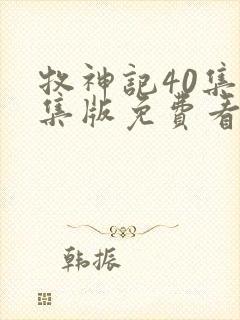 牧神記40集
集版免費看
韩振